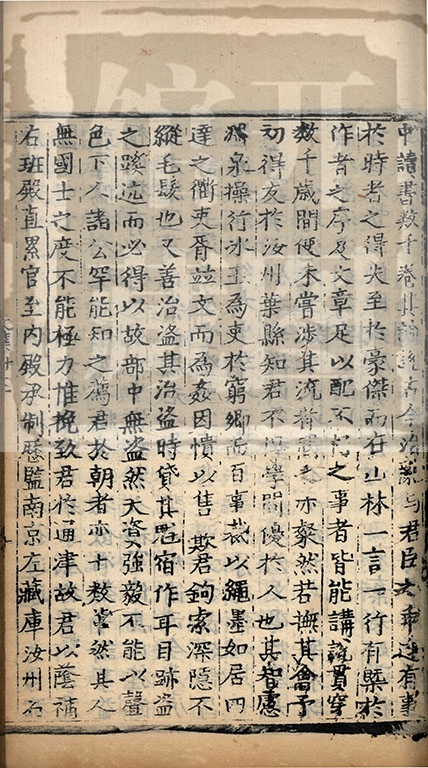 中讀書數千卷其論說古今治亂與君臣之事達有事
於時者之得失至於豪傑而在山林一言一行有槩於
作者之序及文章足以配不朽之事者皆能講說貫穿
數千歲間使未嘗涉其流者聽之亦粲然若撫其會予
初得友於汝州葉縣知君不獨學問優於人也其智慮
淵泉操行冰玉為吏於窮鄉而百事裁以繩墨如居四
達之衢吏胥竝文而為姦因憒以售欺君鉤索深隱不
縱毛髮也又善治盜其治盜時貸其䰢宿作耳目跡盜
之蹊迹而必得以故部中無盜然天資強毅不能以聲
色下人諸公罕能知之薦君於朝者亦十數輩然其人
無國士之度不能極力惟挽致君於通津故君以蔭補
右班殿直累官至內殿承制歷監南京左藏庫汝州